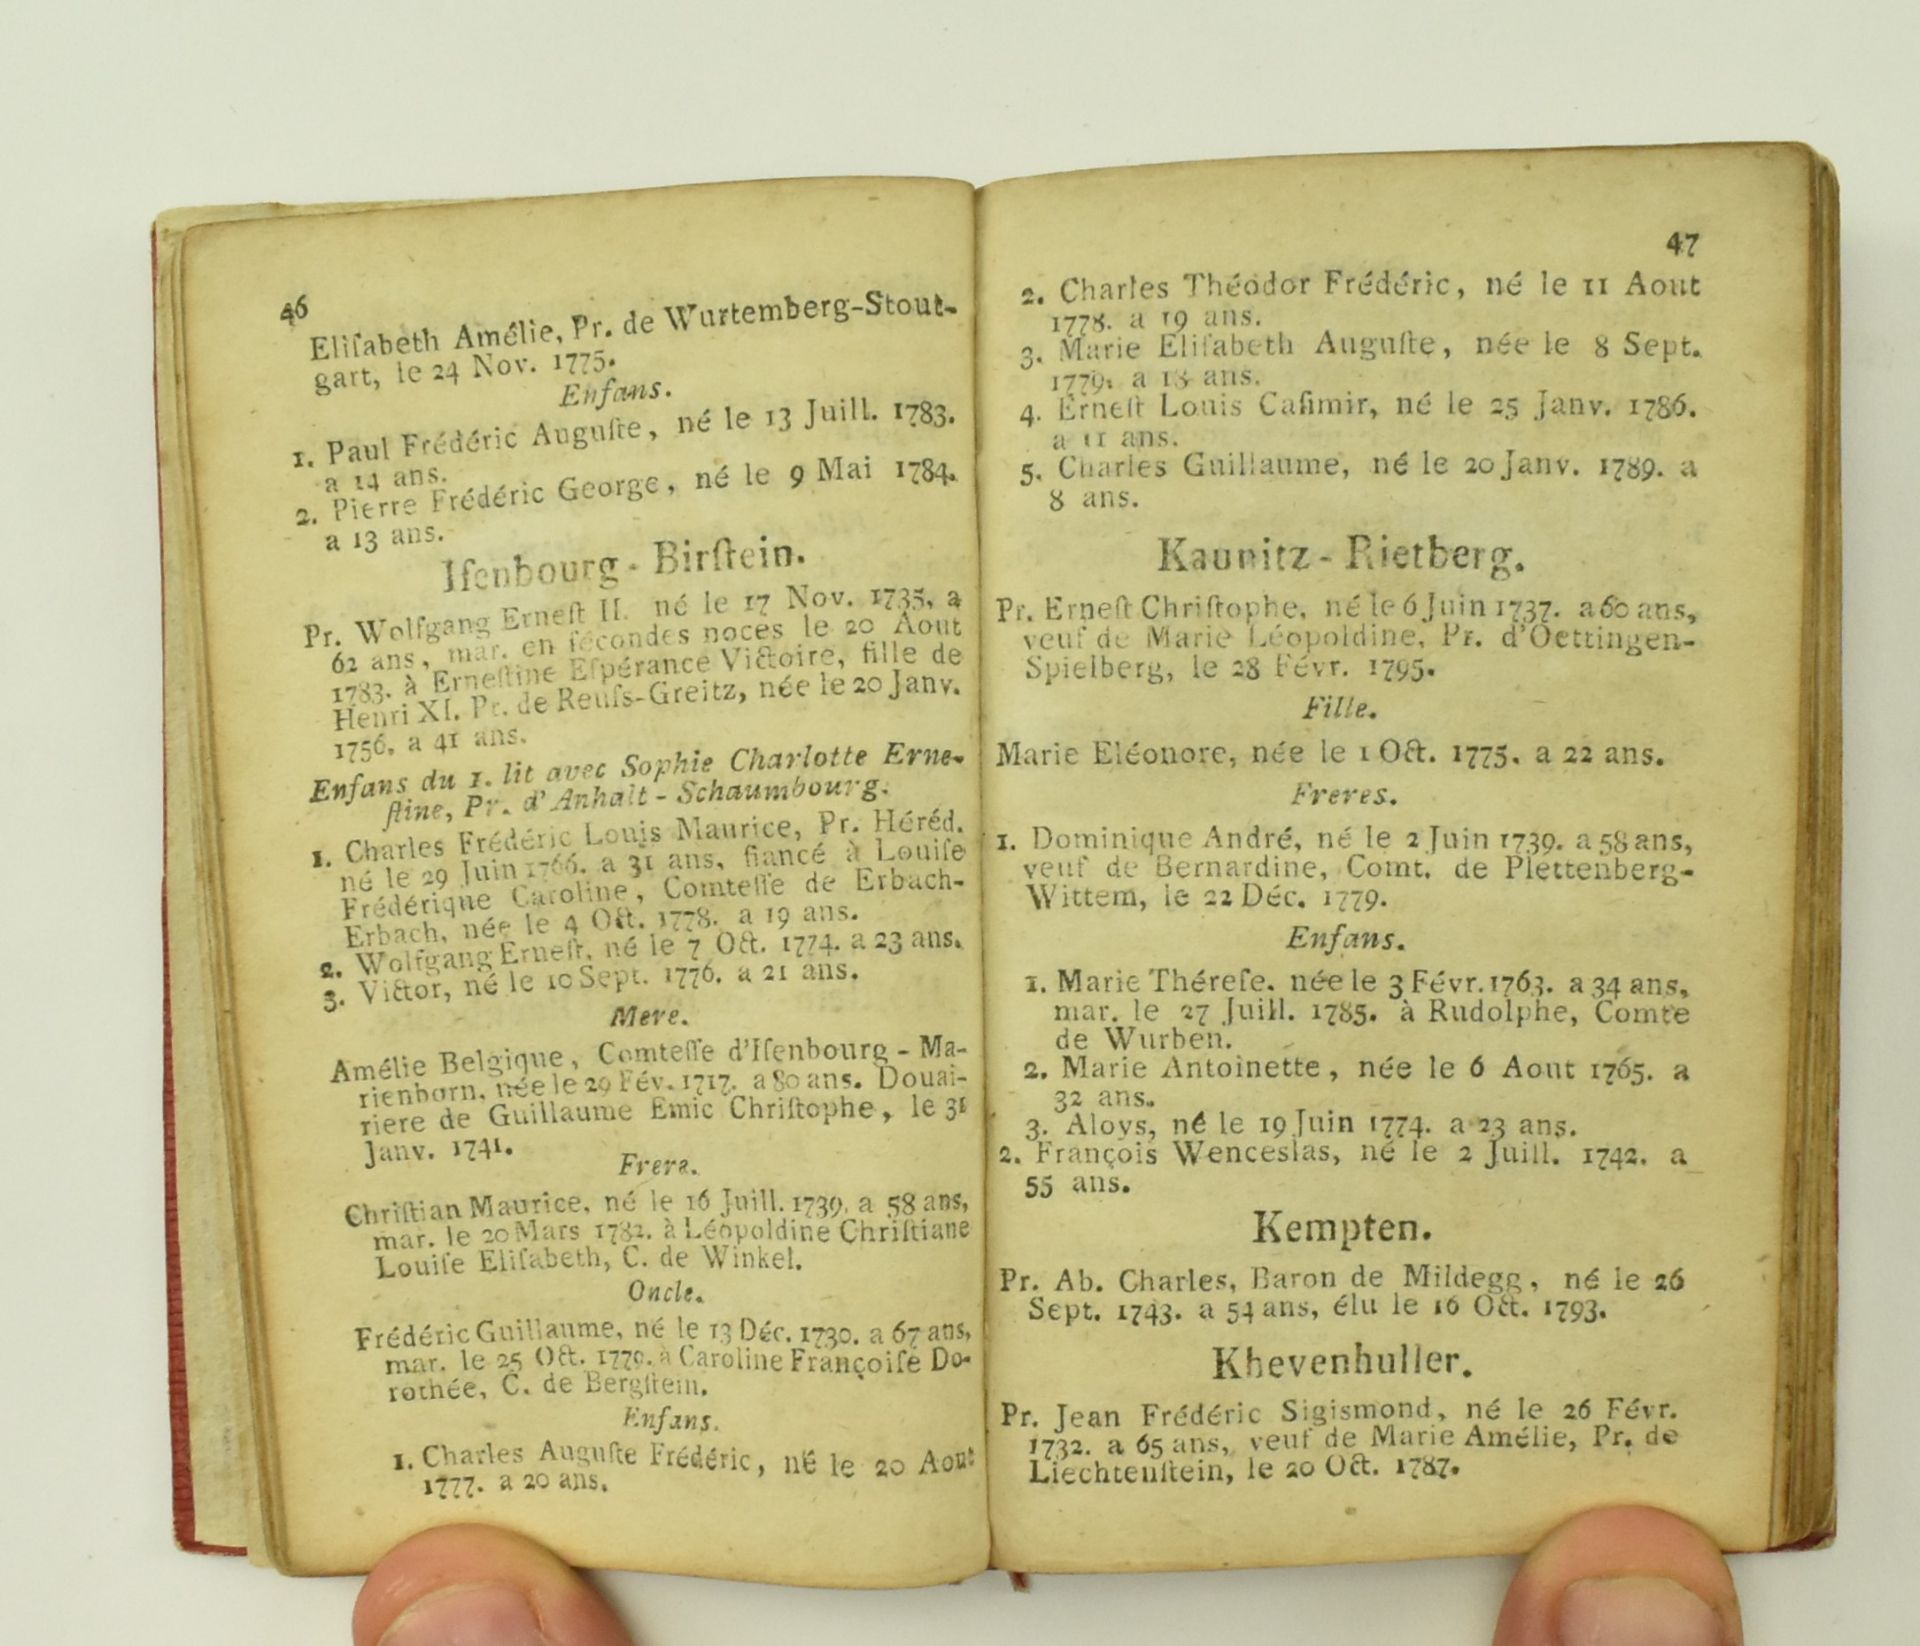 46
Eliſabeth Amélie, Pr. de Wurtemberg-Stout-
gart, le 24 Nov. 1775.
Enfans.
1. Paul Frédéric Auguſte, né le 13 Juill. 1783.
a 14 ans.
2. Pierre Frédéric George, né le 9 Mai 1784.
a 13 ans.
Iſenbourg - Birſtein.
Pr. Wolfgang Erneſt II. né le 17 Nov. 1735. a
62 ans, mar. en ſécondes noces le 20 Aout
1783. à Erneſtine Eſpérance Victoire, fille de
Henri XI. Pr. de Reuſs-Greitz, née le 20 Janv.
1756. a 41 ans.
Enfans du 1. lit avec Sophie Charlotte Erne-
ſtine, Pr. d'Anhalt - Schaumbourg.
1. Charles Frédéric Louis Maurice, Pr. Héréd.
né le 29 Juin 1766. a 31 ans, fiancé à Louiſe
Frédérique Caroline, Comteſſe de Erbach-
Erbach, née le 4 Oct. 1778. a 19 ans.
2. Wolfgang Erneſt, né le 7 Oct. 1774. a 23 ans.
3. Victor, né le 10 Sept. 1776. a 21 ans.
Mere.
Amélie Belgique, Comteſſe d'Iſenbourg - Ma-
rienborn, née le 29 Fév. 1717. a 80 ans. Douai-
riere de Guillaume Emic Chriſtophe, le 31
Janv. 1741.
Frere.
Chriſtian Maurice, né le 16 Juill. 1739. a 58 ans,
mar. le 20 Mars 1782. à Léopoldine Chriſtiane
Louiſe Eliſabeth, C. de Winkel.
Oncle.
Frédéric Guillaume, né le 13 Déc. 1730. a 67 ans,
mar. le 25 Oct. 1770. à Caroline Françoiſe Do-
rothée, C. de Bergſtein.
Enfans.
1. Charles Auguſte Frédéric, né le 20 Aout
1777. a 20 ans.
47
2. Charles Théodor Frédéric, né le 11 Aout
1778. a 19 ans.
3. Marie Eliſabeth Auguſte, née le 8 Sept.
1779. a 18 ans.
4. Erneſt Louis Caſimir, né le 25 Janv. 1786.
a 11 ans.
5. Charles Guillaume, né le 20 Janv. 1789. a
8 ans.
Kaunitz - Rietberg.
Pr. Erneſt Chriſtophe, né le 6 Juin 1737. a 60 ans,
veuf de Marie Léopoldine, Pr. d'Oettingen-
Spielberg, le 28 Févr. 1795.
Fille.
Marie Eléonore, née le 1 Oct. 1775. a 22 ans.
Freres.
1. Dominique André, né le 2 Juin 1739. a 58 ans,
veuf de Bernardine, Comt. de Plettenberg-
Wittem, le 22 Déc. 1779.
Enfans.
1. Marie Théreſe. née le 3 Févr. 1763. a 34 ans,
mar. le 27 Juill. 1785. à Rudolphe, Comte
de Wurben.
2. Marie Antoinette, née le 6 Aout 1765. a
32 ans.
3. Aloys, né le 19 Juin 1774. a 23 ans.
2. François Wenceslas, né le 2 Juill. 1742. a
55 ans.
Kempten.
Pr. Ab. Charles, Baron de Mildegg, né le 26
Sept. 1743. a 54 ans, élu le 16 Oct. 1793.
Khevenhuller.
Pr. Jean Frédéric Sigismond, né le 26 Févr.
1732. a 65 ans, veuf de Marie Amélie, Pr. de
Liechtenſtein, le 20 Oct. 1787.